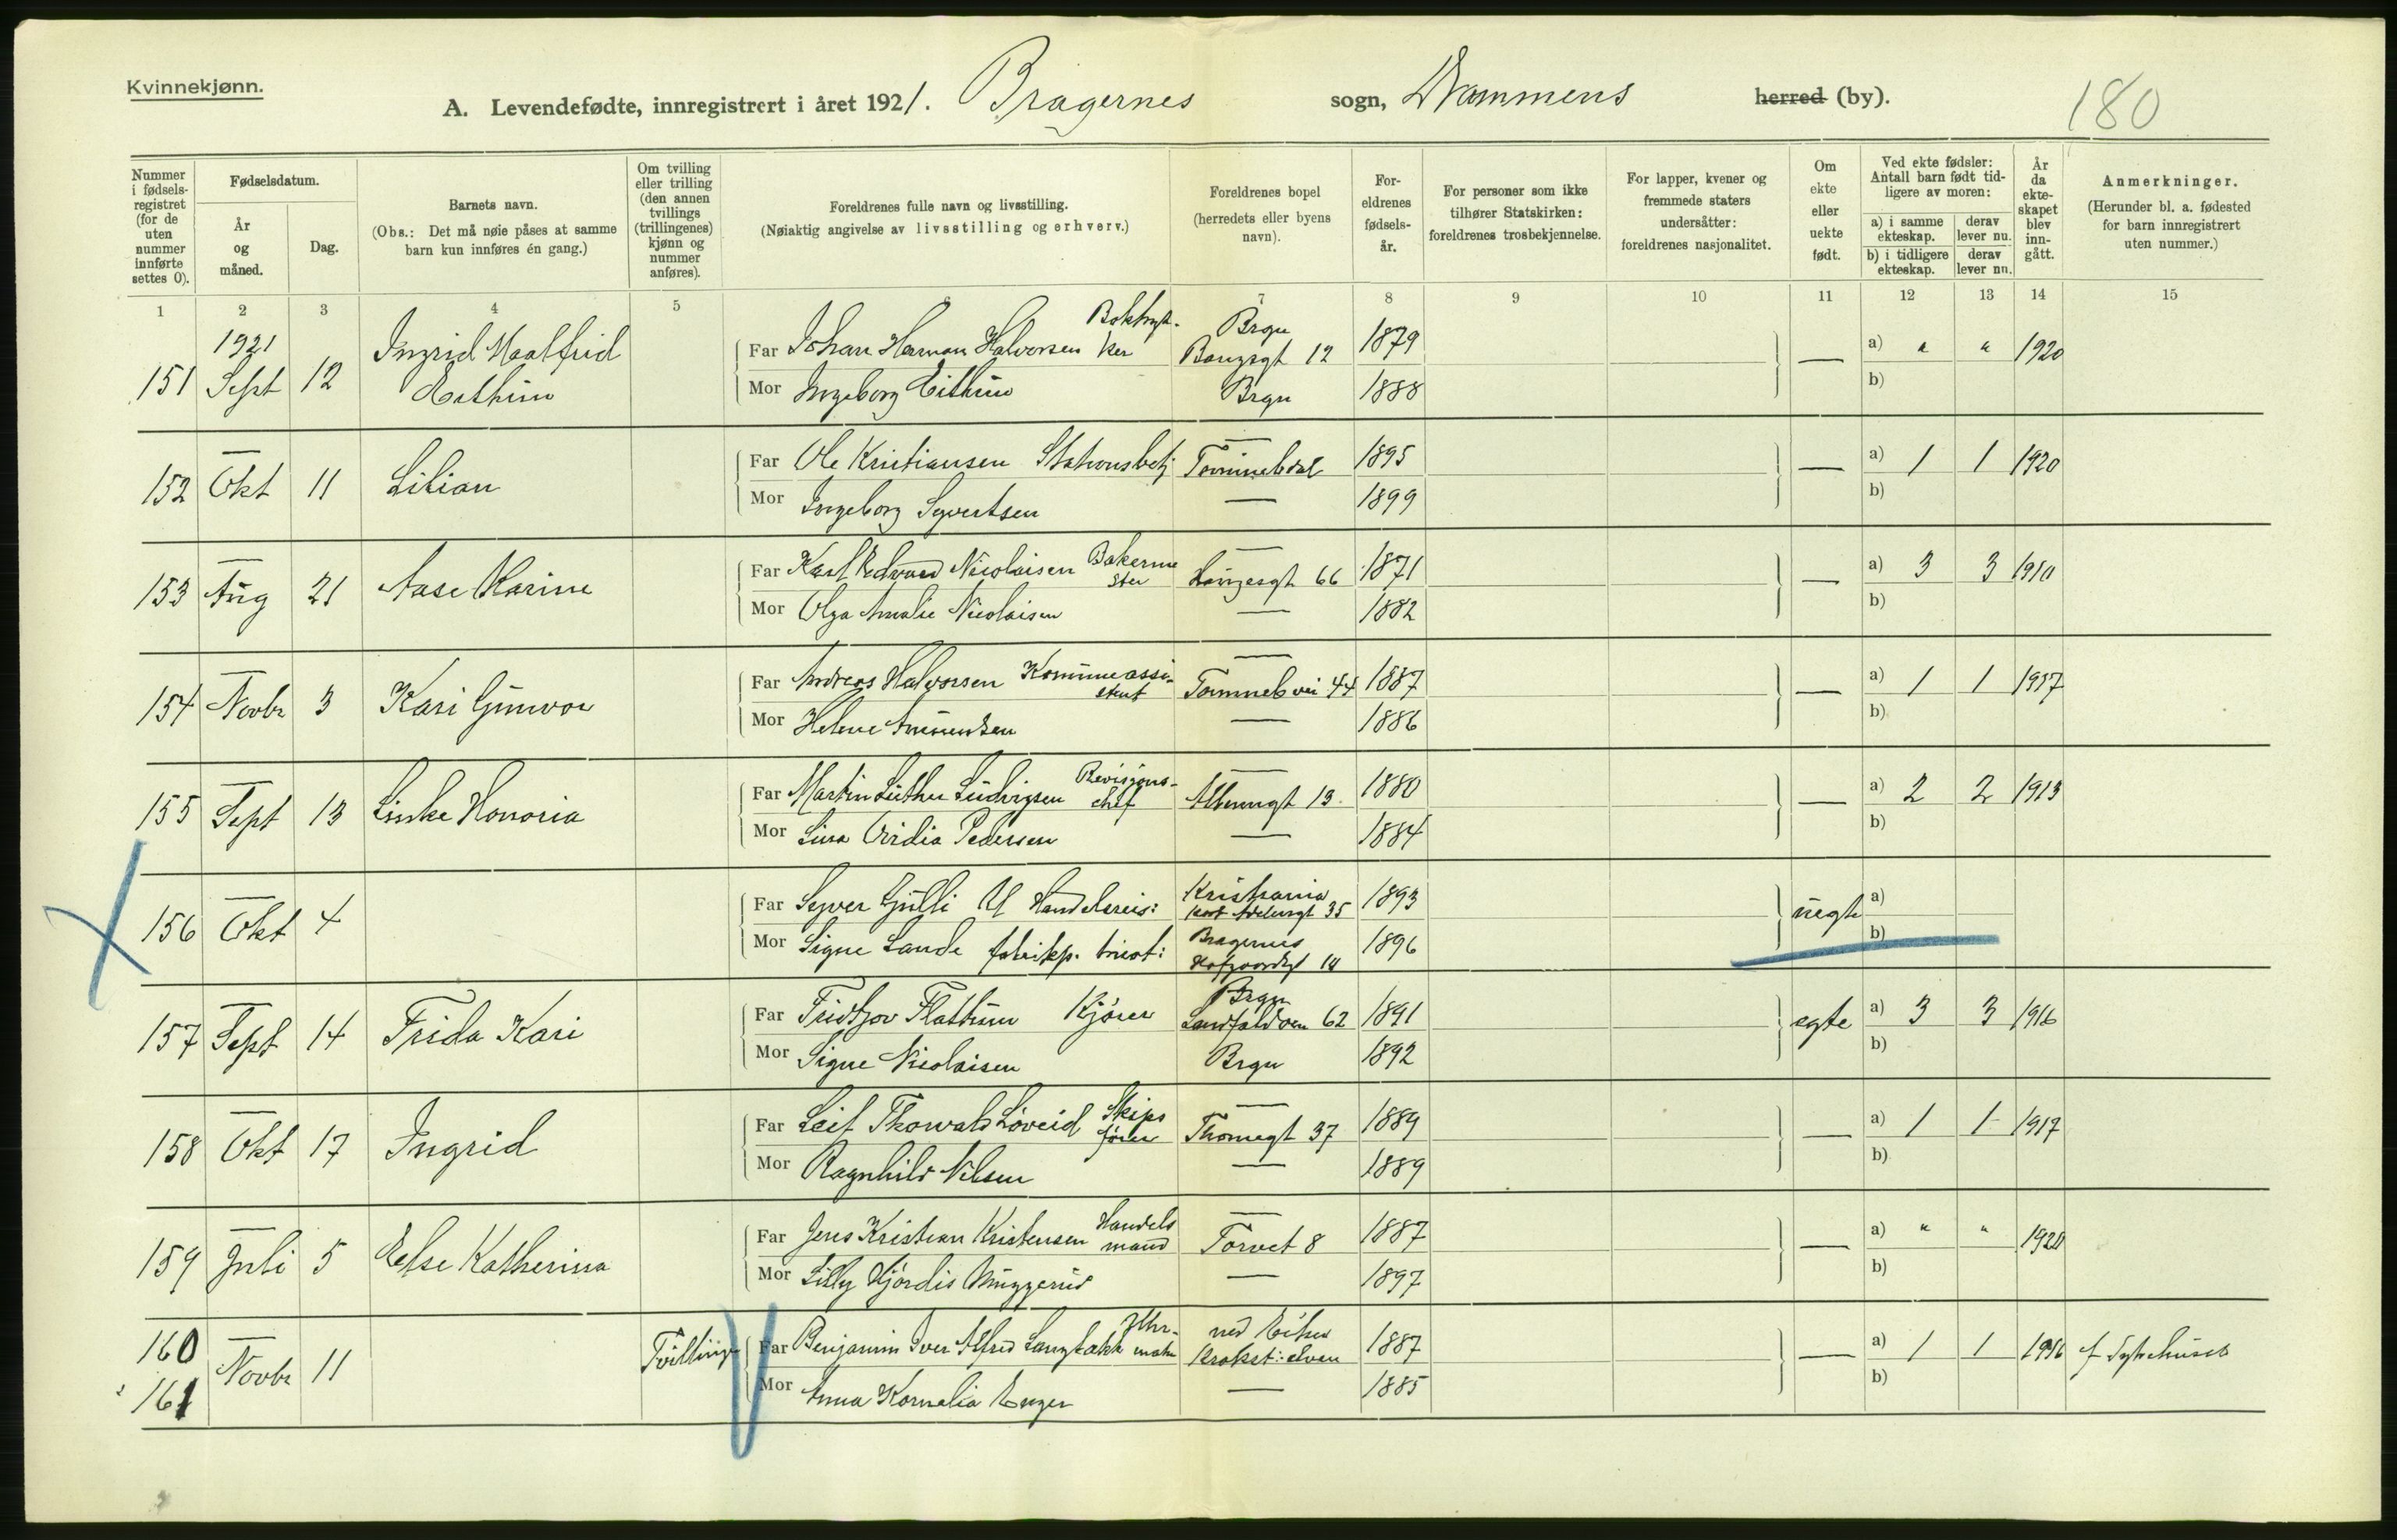 Kvinnekjønn.
A. Levendefødte, innregistrert i året 1921. Bragernes sogn, Drammens herred (by).
180
Nummer i fødsels-registret (for de uten nummer innførte settes 0).
Fødselsdatum.
År og måned.
Dag.
Barnets navn.
(Obs.: Det må nøie påses at samme barn kun innføres én gang.)
Om tvilling eller trilling (den annen tvillings (trillingenes) kjønn og nummer anføres).
Foreldrenes fulle navn og livsstilling.
(Nøiaktig angivelse av livsstilling og erhverv.)
Foreldrenes bopel (herredets eller byens navn).
For-eldrenes fødsels-år.
For personer som ikke tilhører Statskirken: foreldrenes trosbekjennelse.
For lapper, kvener og fremmede staters undersåtter: foreldrenes nasjonalitet.
Om ekte eller uekte født.
Ved ekte fødsler: Antall barn født tid-ligere av moren:
a) i samme ekteskap. derav lever nu.
b) i tidligere ekteskap. derav lever nu.
År da ekte-skapet blev inn-gått.
Anmerkninger.
(Herunder bl. a. fødested for barn innregistrert uten nummer.)
1 2 3 4 5 6 7 8 9 10 11 12 13 14 15
151 1921 Sept 12 Ingrid Maalfrid Eithun
Far Johan Herman Halvorsen Boktryk-ker Brgn Baugsgt 12 1879 — a) " " 1920
Mor Ingeborg Eithun Brgn 1888 b)
152 — Okt 11 Lilian
Far Ole Kristiansen Stationsbetj — 1895 — a) 1 1 1920
Mor Ingeborg Syvertsen — 1899 b)
153 — Aug 21 Aase Karine
Far Karl Edvard Nicolaisen Bakermester — Haugesgt 66 1871 — a) 3 3 1910
Mor Olga Amalie Nicolaisen — 1882 b)
154 — Novbr 3 Kari Gunvor
Far Andreas Halvorsen Kommuneassi-stent — 44 1887 — a) 1 1 1917
Mor Helene Amundsen — 1886 b)
155 — Sept 13 Honoria
Far Martin Luther Ludvigsen Revisjons-chef — 13 1880 — a) 2 2 1913
Mor Lina Pedersen — 1884 b)
156 — Okt 4
Far Syver Gulli Handelsreis: Kristiania Kort Adelersgt 35 1893 uegte a)
Mor Signe Lande fabrikp. tricot: Bragernes Hofgaardsgt 14 1896 b)
157 — Sept 14 Frida Kari
Far Fridtjov Flattum Kjører Brgn Landfaldøen 62 1891 egte a) 3 3 1916
Mor Signe Nicolaisen Brgn 1892 b)
158 — Okt 17 Ingrid
Far Leif Thorwald Løveid Skipsfører — Thomegt 37 1889 — a) 1 1 1917
Mor Ragnhild Nilsen — 1889 b)
159 — Juli 5 Else Katherina
Far Jens Kristian Kristensen Handelsmand — Torvet 8 1887 — a) " " 1920
Mor Lilly Hjørdis Muggerud — 1897 b)
160 161 — Novbr 11 Tvillinger
Far Benjamin Iver Alfred ned Eiker Krokst:elven 1887 — a) 1 1 1916 f Sykehuset
Mor Anna Kornelia Enger — 1885 b)